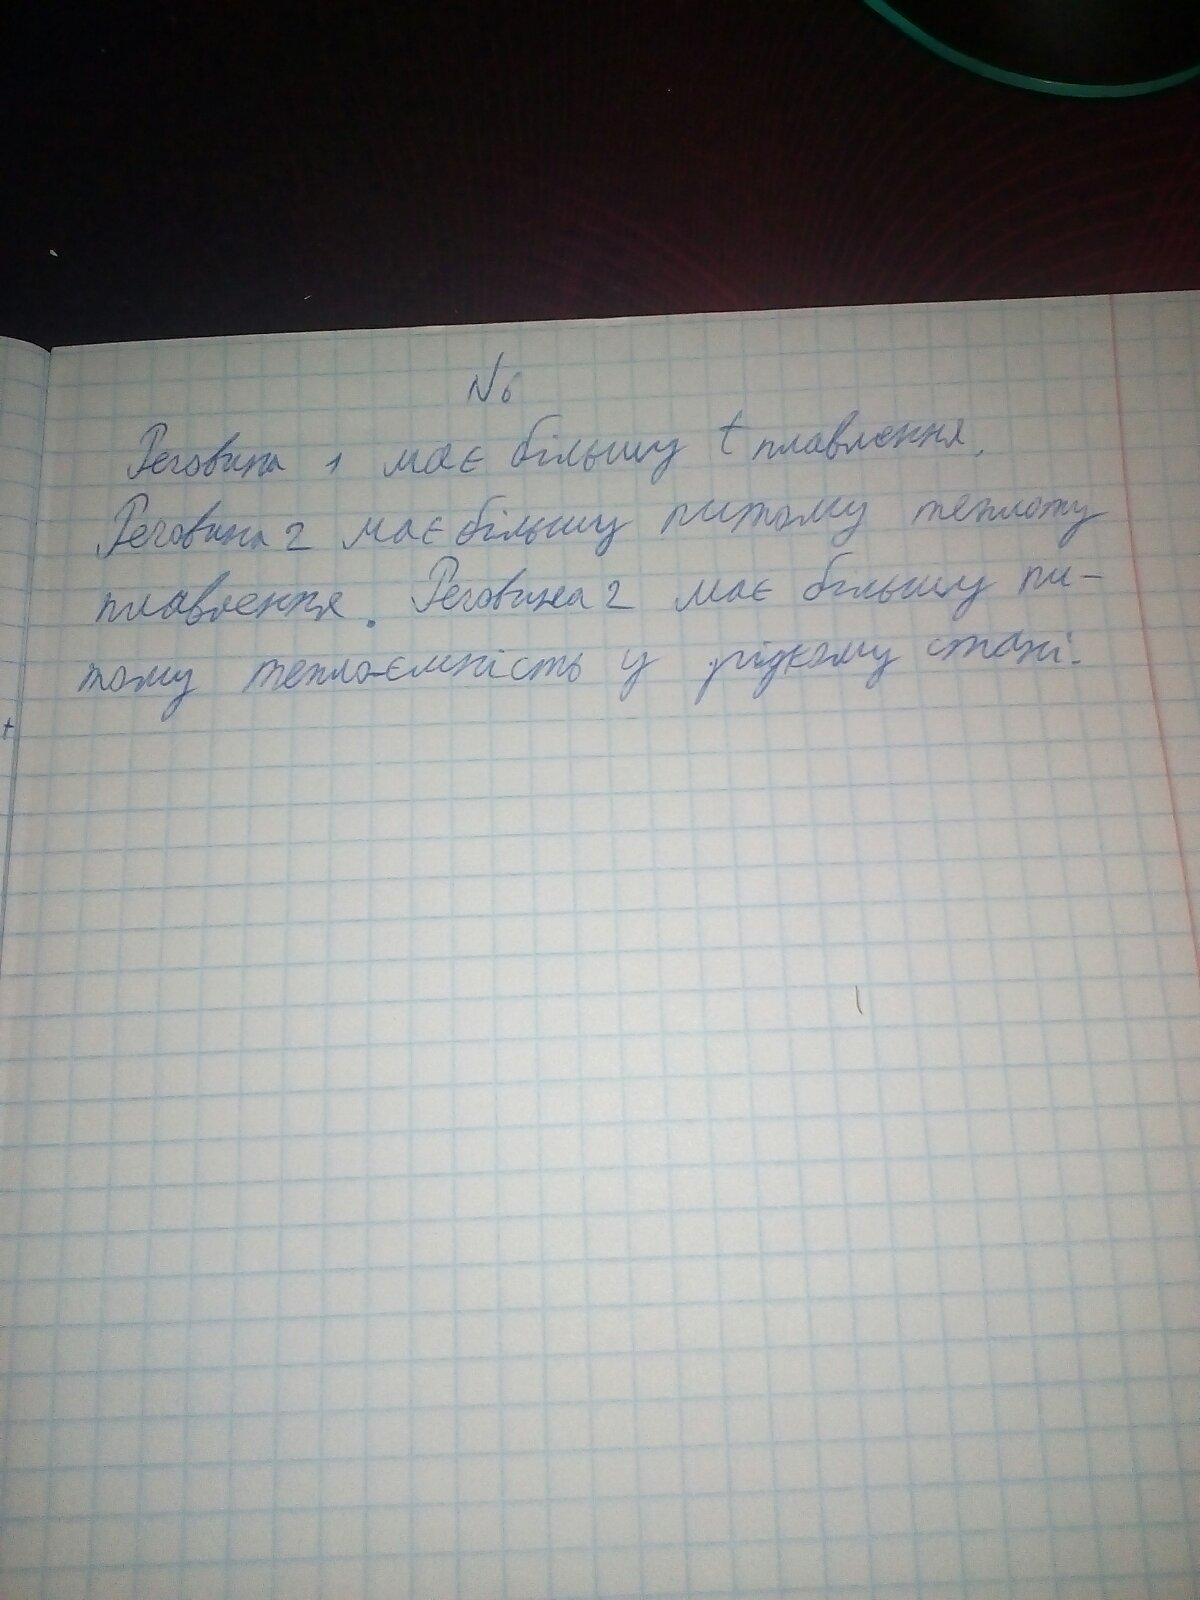 №6
Речовина 1 має більшу t плавлення.
Речовина 2 має більшу питому теплоту
плавлення. Речовина 2 має більшу пи-
тому теплоємність у рідкому стані.
t